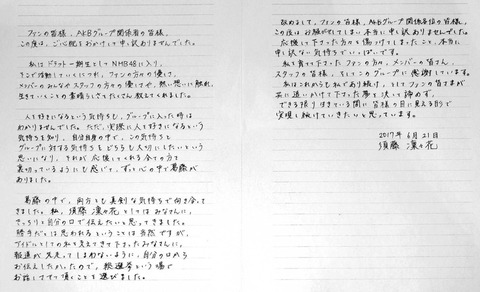 ファンの皆様、AKBグループ関係者の皆様、
この度は、ご心配をおかけして申し訳ありませんでした。
私はドラフト一期生としてNMB48に入り、
そこで活動していくにつれ、ファンの方々の優しさ、
メンバーのみんなやスタッフの方々の優しさや、熱い想いに触れ、
生きていくことの素晴らしさをたくさん教えてくれました。
人を好きになるという気持ちも、グループに入った時は
わかりませんでした。ただ、実際に人を好きになるという
気持ちを知り、自分自身の中で、この気持ちと
グループに対する気持ちをどちらも大切にしたいという
思いになり、それが応援してくれる全ての方を
裏切っているようにも感じて、ずっと心の中で葛藤が
ありました。
葛藤の中で、両方とも真剣な気持ちで向き合って
きました。私、須藤凜々花としてはみなさんに、
きっちりと自分の口で伝えたいと思ってきました。
勝手だとは思われるということは当然ですが、
アイドルとしての私を支えてきて下さったみなさんに、
報道が先走ってしまわないように、自分の口から
お伝えしたかったので、総選挙という場で
お話しさせて頂くことを選びました。
改めまして、ファンの皆様、AKBグループ関係者各位の皆様、
この度はお騒がせてしまい本当に申し訳ありませんでした。
応援して下さった方々を傷つけてしまったこと、本当に
申し訳ない気持ちでいっぱいです。
私を育てて下さったファンの方々、メンバーの皆さん、
スタッフの皆様、そしてこのグループに感謝しています。
私はこれからも私であり続け、そしてファンの皆さまが
共に追いかけて下さった夢を決して諦めず、
できる限り近いうちに皆様の目に見える形で
実現し続けていきたいと思っています。
2017年 6月 21日
須藤 凜々花